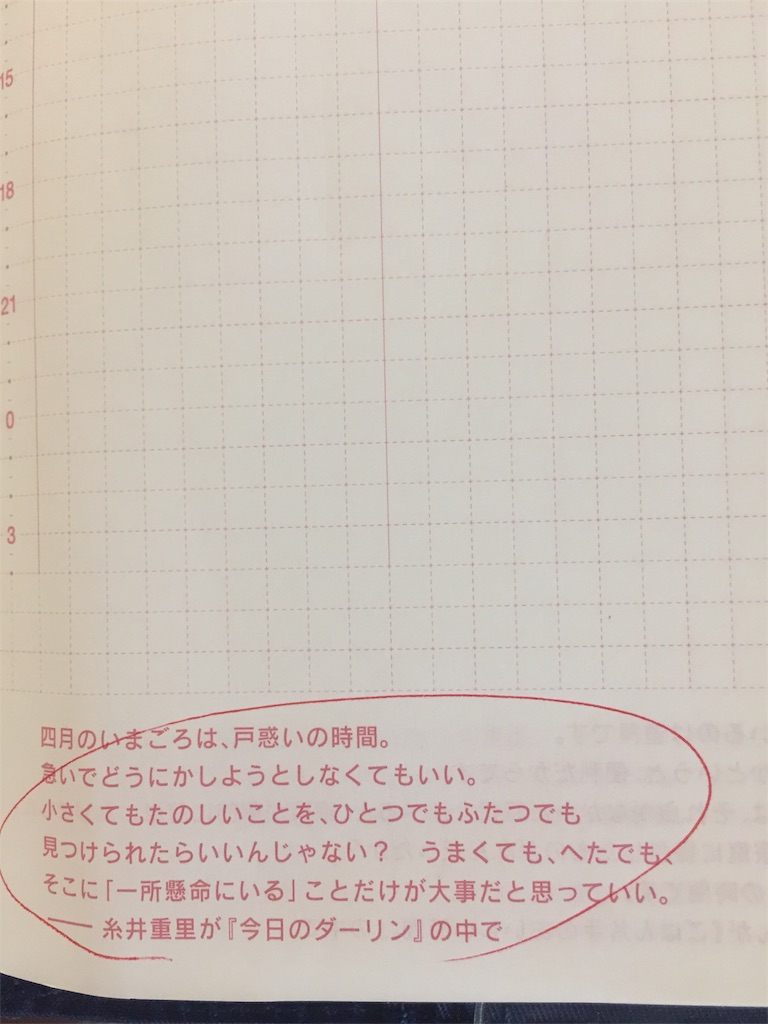 15
18
21
0
3
四月のいまごろは、戸惑いの時間。
急いでどうにかしようとしなくてもいい。
小さくてもたのしいことを、ひとつでもふたつでも
見つけられたらいいんじゃない？　うまくても、へたでも、
そこに「一所懸命にいる」ことだけが大事だと思っていい。
── 糸井重里が『今日のダーリン』の中で